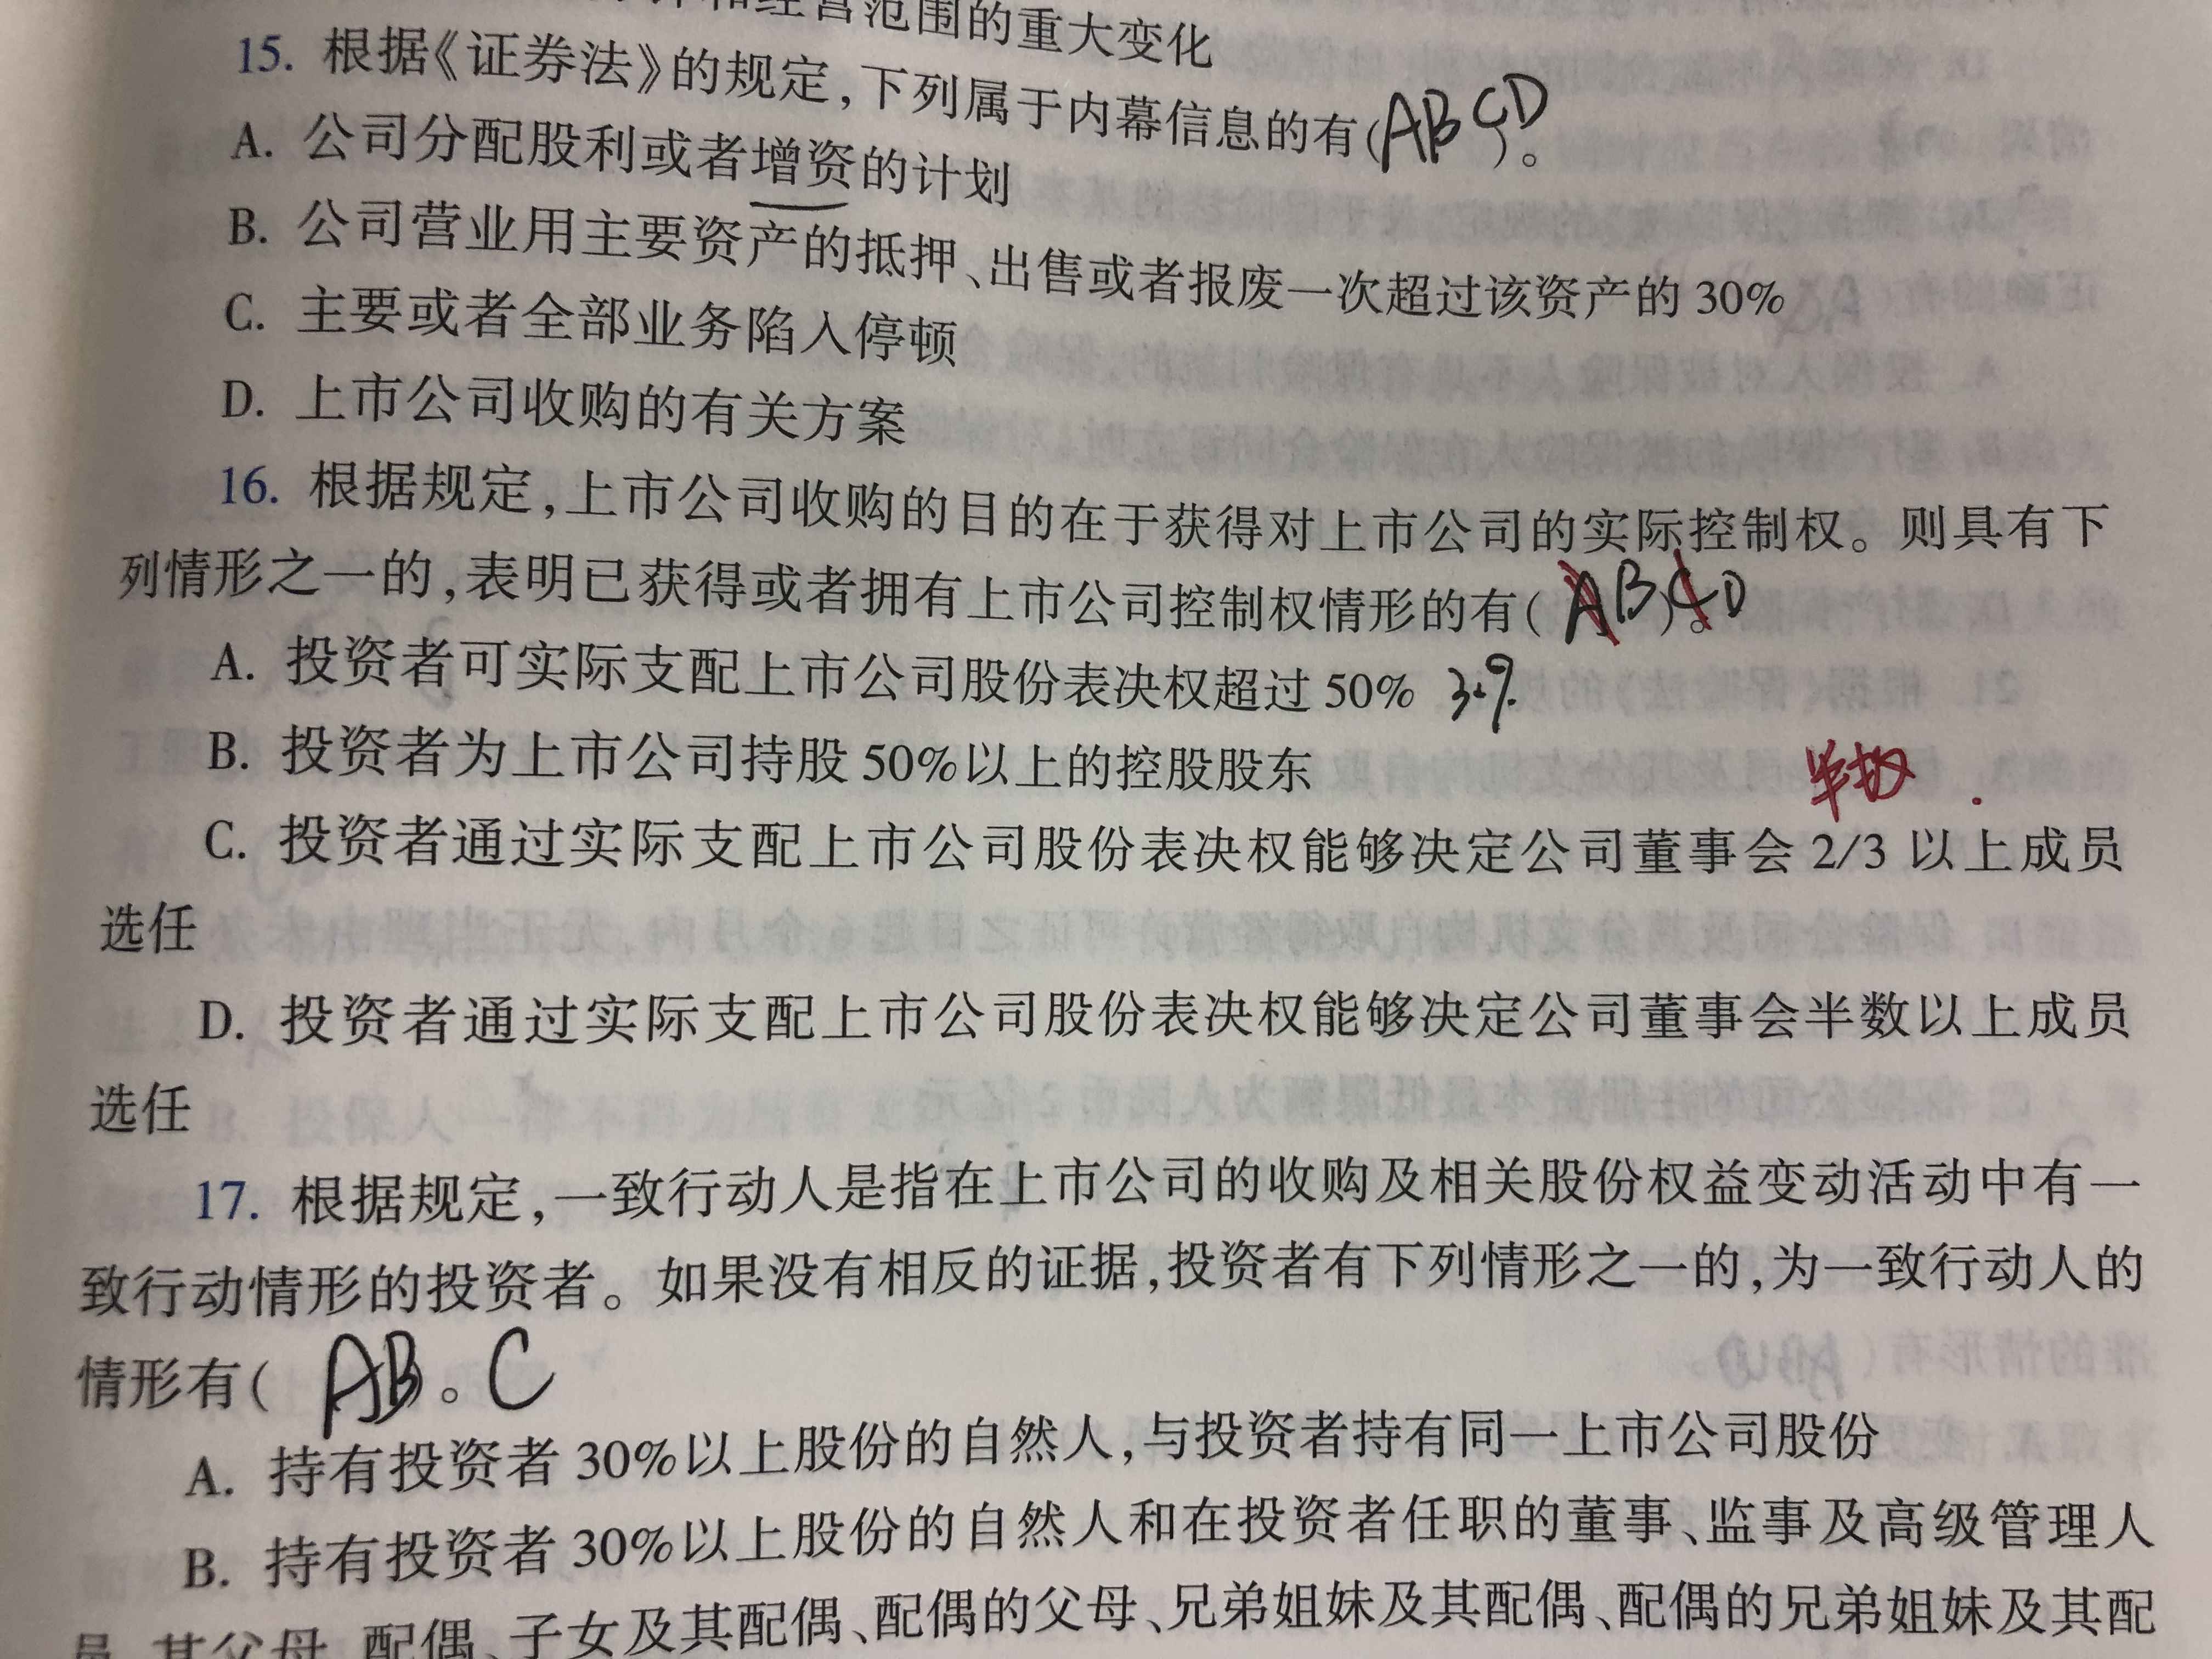 和经营范围的重大变化
15. 根据《证券法》的规定,下列属于内幕信息的有(ABCD)。
A. 公司分配股利或者增资的计划
B. 公司营业用主要资产的抵押、出售或者报废一次超过该资产的30%
C. 主要或者全部业务陷入停顿
D. 上市公司收购的有关方案
16. 根据规定,上市公司收购的目的在于获得对上市公司的实际控制权。则具有下
列情形之一的,表明已获得或者拥有上市公司控制权情形的有( AB)。CD
A. 投资者可实际支配上市公司股份表决权超过50%
B. 投资者为上市公司持股50%以上的控股股东
半数
C. 投资者通过实际支配上市公司股份表决权能够决定公司董事会2/3以上成员
选任
D. 投资者通过实际支配上市公司股份表决权能够决定公司董事会半数以上成员
选任
17. 根据规定,一致行动人是指在上市公司的收购及相关股份权益变动活动中有一
致行动情形的投资者。如果没有相反的证据,投资者有下列情形之一的,为一致行动人的
情形有( AB)。C
A. 持有投资者30%以上股份的自然人,与投资者持有同一上市公司股份
B. 持有投资者30%以上股份的自然人和在投资者任职的董事、监事及高级管理人
员、其父母、配偶、子女及其配偶、配偶的父母、兄弟姐妹及其配偶、配偶的兄弟姐妹及其配